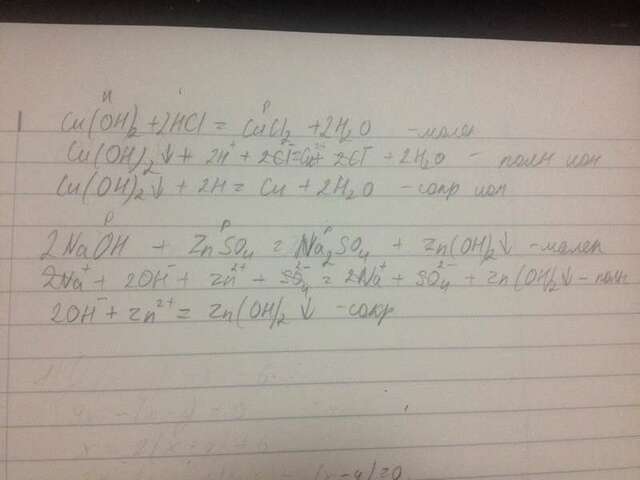 н р
Cu(OH)₂ + 2HCl = CuCl₂ + 2H₂O - молек
Cu(OH)₂↓ + 2H⁺ + 2Cl⁻ = Cu²⁺ + 2Cl⁻ + 2H₂O - полн ион
Cu(OH)₂↓ + 2H = Cu + 2H₂O - сокр ион
р р р
2NaOH + ZnSO₄ = Na₂SO₄ + Zn(OH)₂↓ - молек
2Na⁺ + 2OH⁻ + Zn²⁺ + SO₄²⁻ = 2Na⁺ + SO₄²⁻ + Zn(OH)₂↓ - полн
2OH⁻ + Zn²⁺ = Zn(OH)₂↓ - сокр